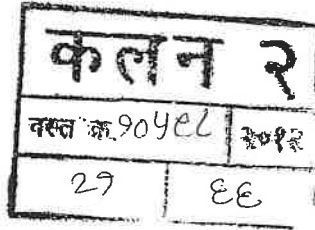 कलन २
दस्त क्र. १०५९८ २०१२
२१ ६६